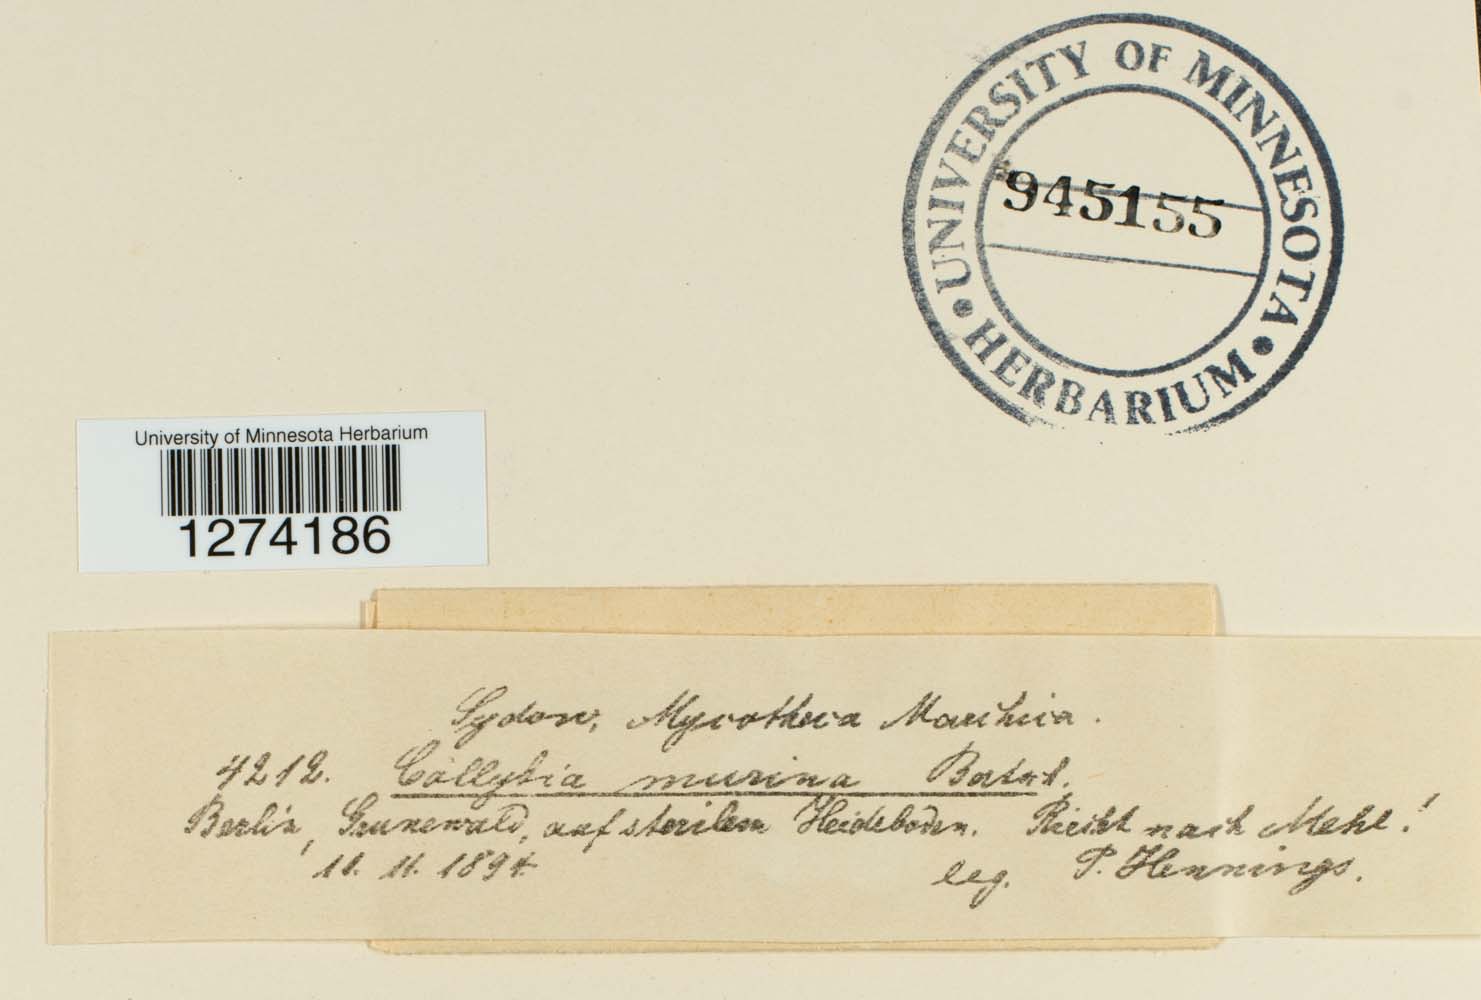 UNIVERSITY OF MINNESOTA
945155
HERBARIUM
University of Minnesota Herbarium
1274186
Sydow, Mycotheca Marchica.
4212. Collybia murina Batsch.
Berlin, Grunewald, auf sterilem Heideboden. Riecht nach Mehl!
11. 11. 1894 leg. P. Hennings.